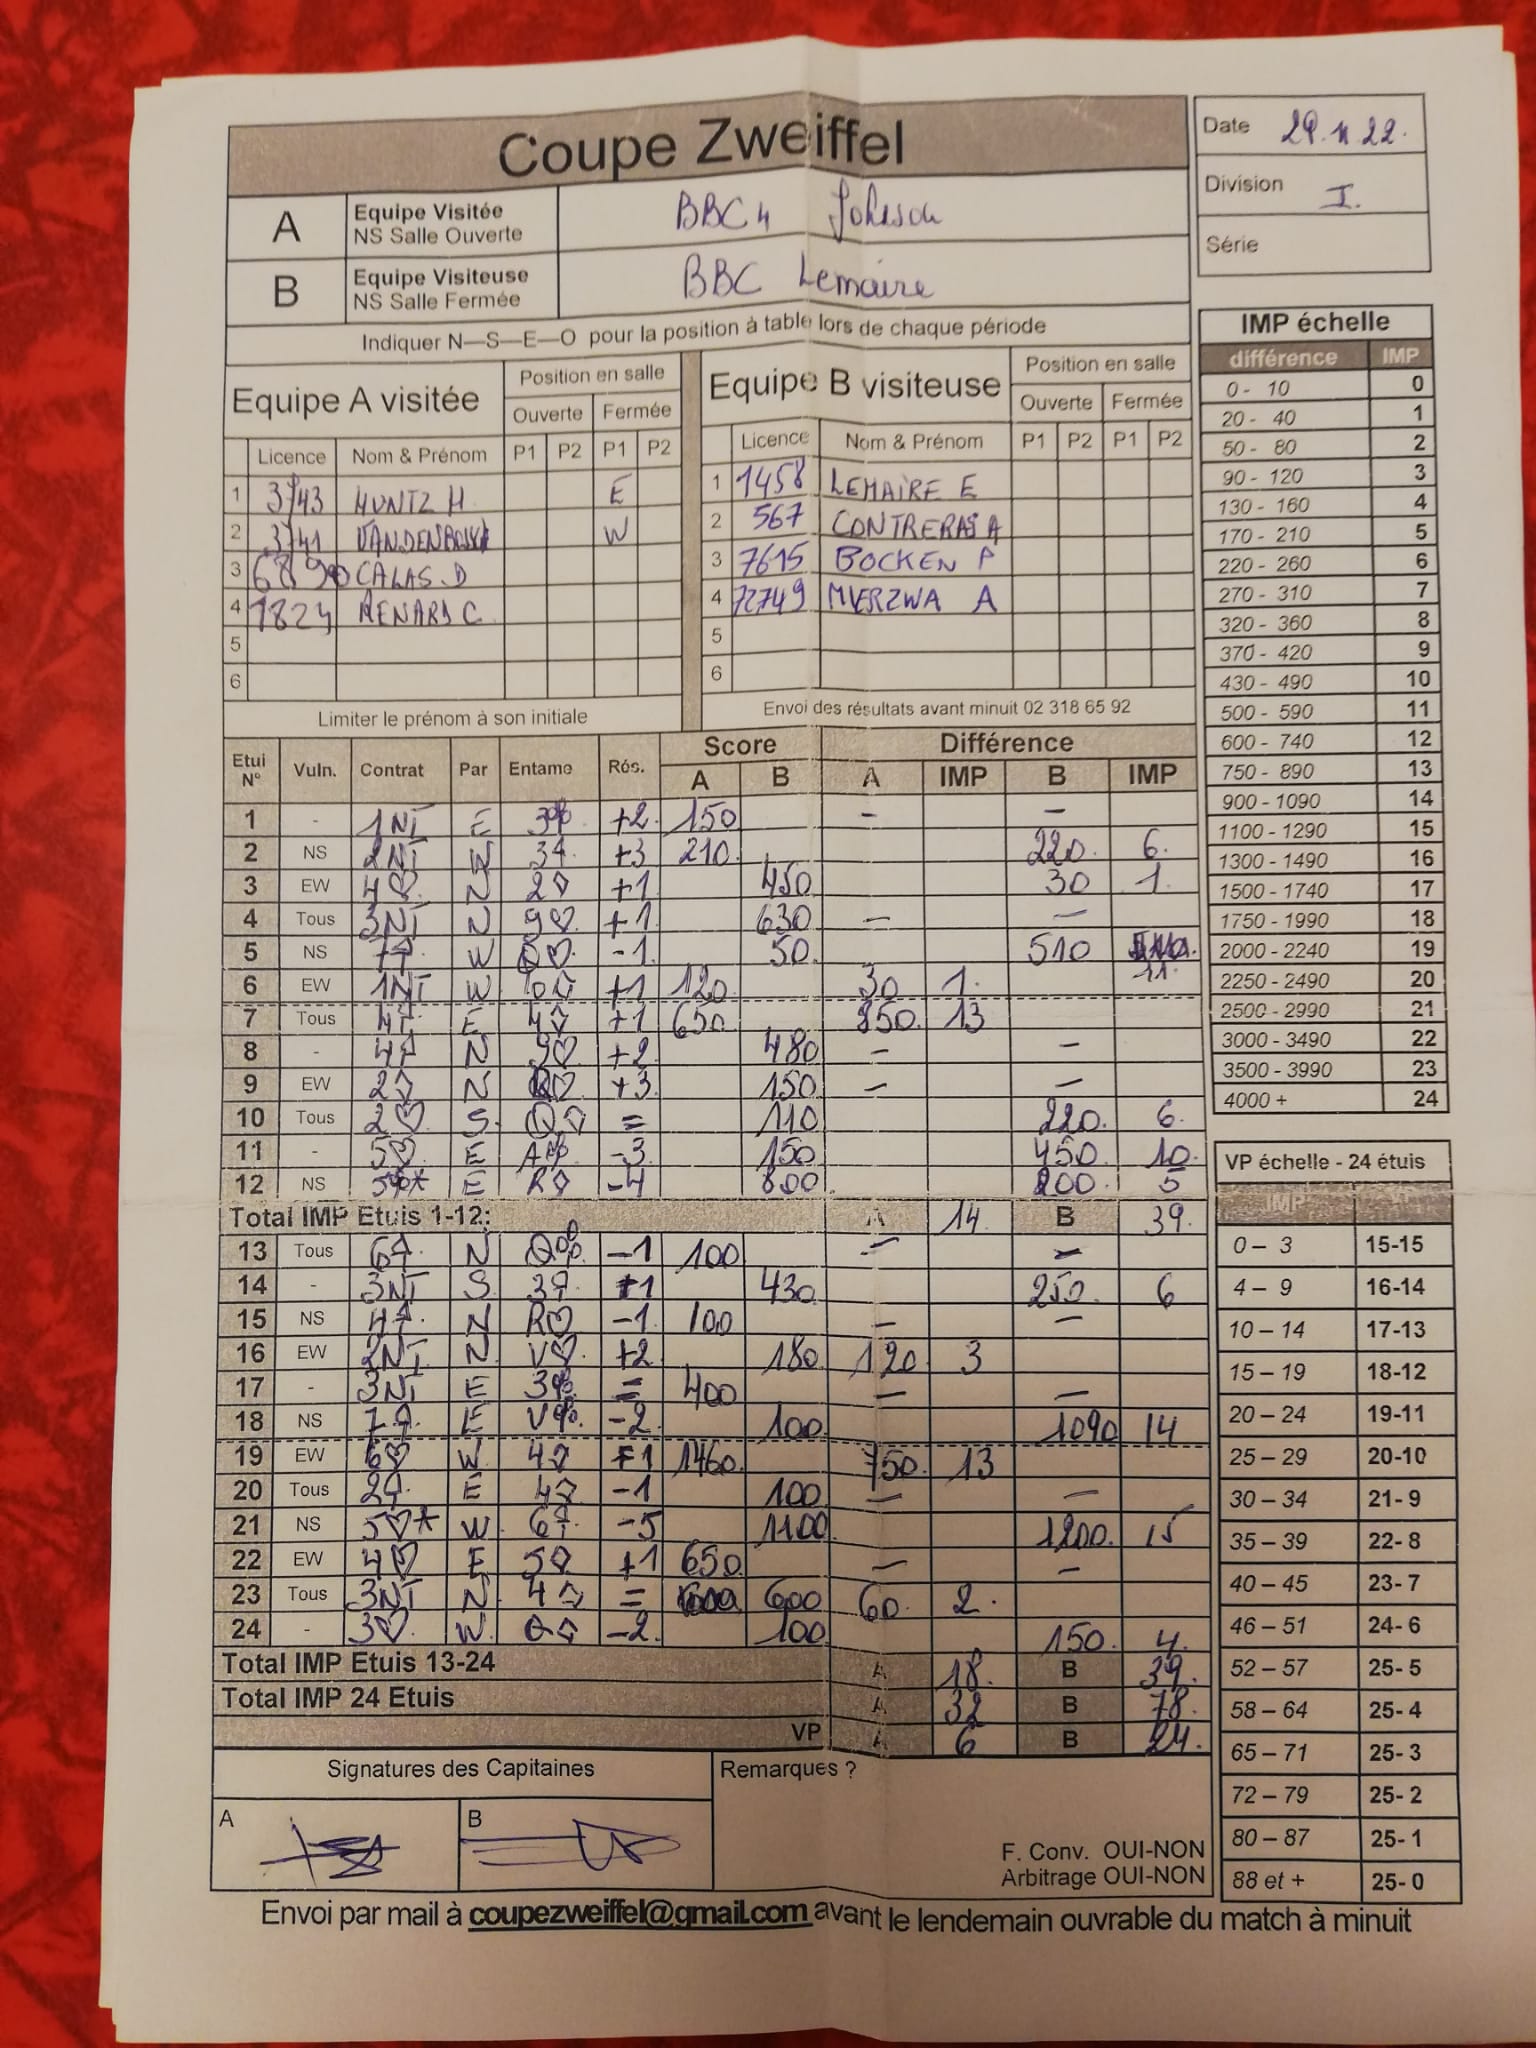 Coupe Zweiffel
Date 29.11.22.
Division I.
Série
A Equipe Visitée NS Salle Ouverte BBC 4 Johnson
B Equipe Visiteuse NS Salle Fermée BBC Lemaire
Indiquer N—S—E—O pour la position à table lors de chaque période
Equipe A visitée Position en salle
Ouverte Fermée
Licence Nom & Prénom P1 P2 P1 P2
1 3743 MUNTZ H E
2 3741 W
3 6890 CALAS. D
4 1824 RENARD C
5
6
Limiter le prénom à son initiale
Equipe B visiteuse Position en salle
Ouverte Fermée
Licence Nom & Prénom P1 P2 P1 P2
1 1458 LEMAIRE E
2 567 CONTRERAS A
3 7615 BOCKEN P
4 72749 MIERZWA A
5
6
Envoi des résultats avant minuit 02 318 65 92
Etui N° Vuln. Contrat Par Entame Rés. Score Différence
A B A IMP B IMP
1 - 1NT E 3♣ +2 150 — —
2 NS 2NT W 3♠ +3 210 220 6
3 EW 4♡ N 2♢ +1 450 30 1
4 Tous 3NT N 9♡ +1 630 — —
5 NS W -1 50 510 11
6 EW 1NT W +1 120 30 1
7 Tous 4♠ E 4♢ +1 650 850 13
8 - 4♠ N +2 480 — —
9 EW 2♢ N +3 150 — —
10 Tous 2♡ S Q♢ = 110 220 6
11 - 5♡ E A♣ -3 150 450 10
12 NS 5♣* E R♢ -4 800 200 5
Total IMP Etuis 1-12: A 14 B 39
13 Tous 6♠ N Q♣ -1 100 — —
14 - 3NT S 3♠ +1 430 250 6
15 NS 4♠ N R♡ -1 100 — —
16 EW 2NT N V♡ +2 180 120 3
17 - 3NT E 3♣ = 400 — —
18 NS 7♠ E V♣ -2 100 1090 14
19 EW 6♡ W 4♢ +1 1460 750 13
20 Tous 2♠ E 4♢ -1 100 — —
21 NS 5♡* W 6♠ -5 1100 1200 15
22 EW 4♡ E 5♢ +1 650 — —
23 Tous 3NT N 4♢ = 600 60 2
24 - 3♡ W Q♢ -2 100 150 4
Total IMP Etuis 13-24 A 18 B 39
Total IMP 24 Etuis A 32 B 78
VP A 6 B 24
Signatures des Capitaines
A B
Remarques ?
F. Conv. OUI-NON
Arbitrage OUI-NON
IMP échelle
différence IMP
0 - 10 0
20 - 40 1
50 - 80 2
90 - 120 3
130 - 160 4
170 - 210 5
220 - 260 6
270 - 310 7
320 - 360 8
370 - 420 9
430 - 490 10
500 - 590 11
600 - 740 12
750 - 890 13
900 - 1090 14
1100 - 1290 15
1300 - 1490 16
1500 - 1740 17
1750 - 1990 18
2000 - 2240 19
2250 - 2490 20
2500 - 2990 21
3000 - 3490 22
3500 - 3990 23
4000 + 24
VP échelle - 24 étuis
IMP
0 – 3 15-15
4 – 9 16-14
10 – 14 17-13
15 – 19 18-12
20 – 24 19-11
25 – 29 20-10
30 – 34 21- 9
35 – 39 22- 8
40 – 45 23- 7
46 – 51 24- 6
52 – 57 25- 5
58 – 64 25- 4
65 – 71 25- 3
72 – 79 25- 2
80 – 87 25- 1
88 et + 25- 0
Envoi par mail à coupezweiffel@gmail.com avant le lendemain ouvrable du match à minuit